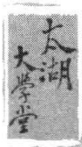 太湖
大學堂